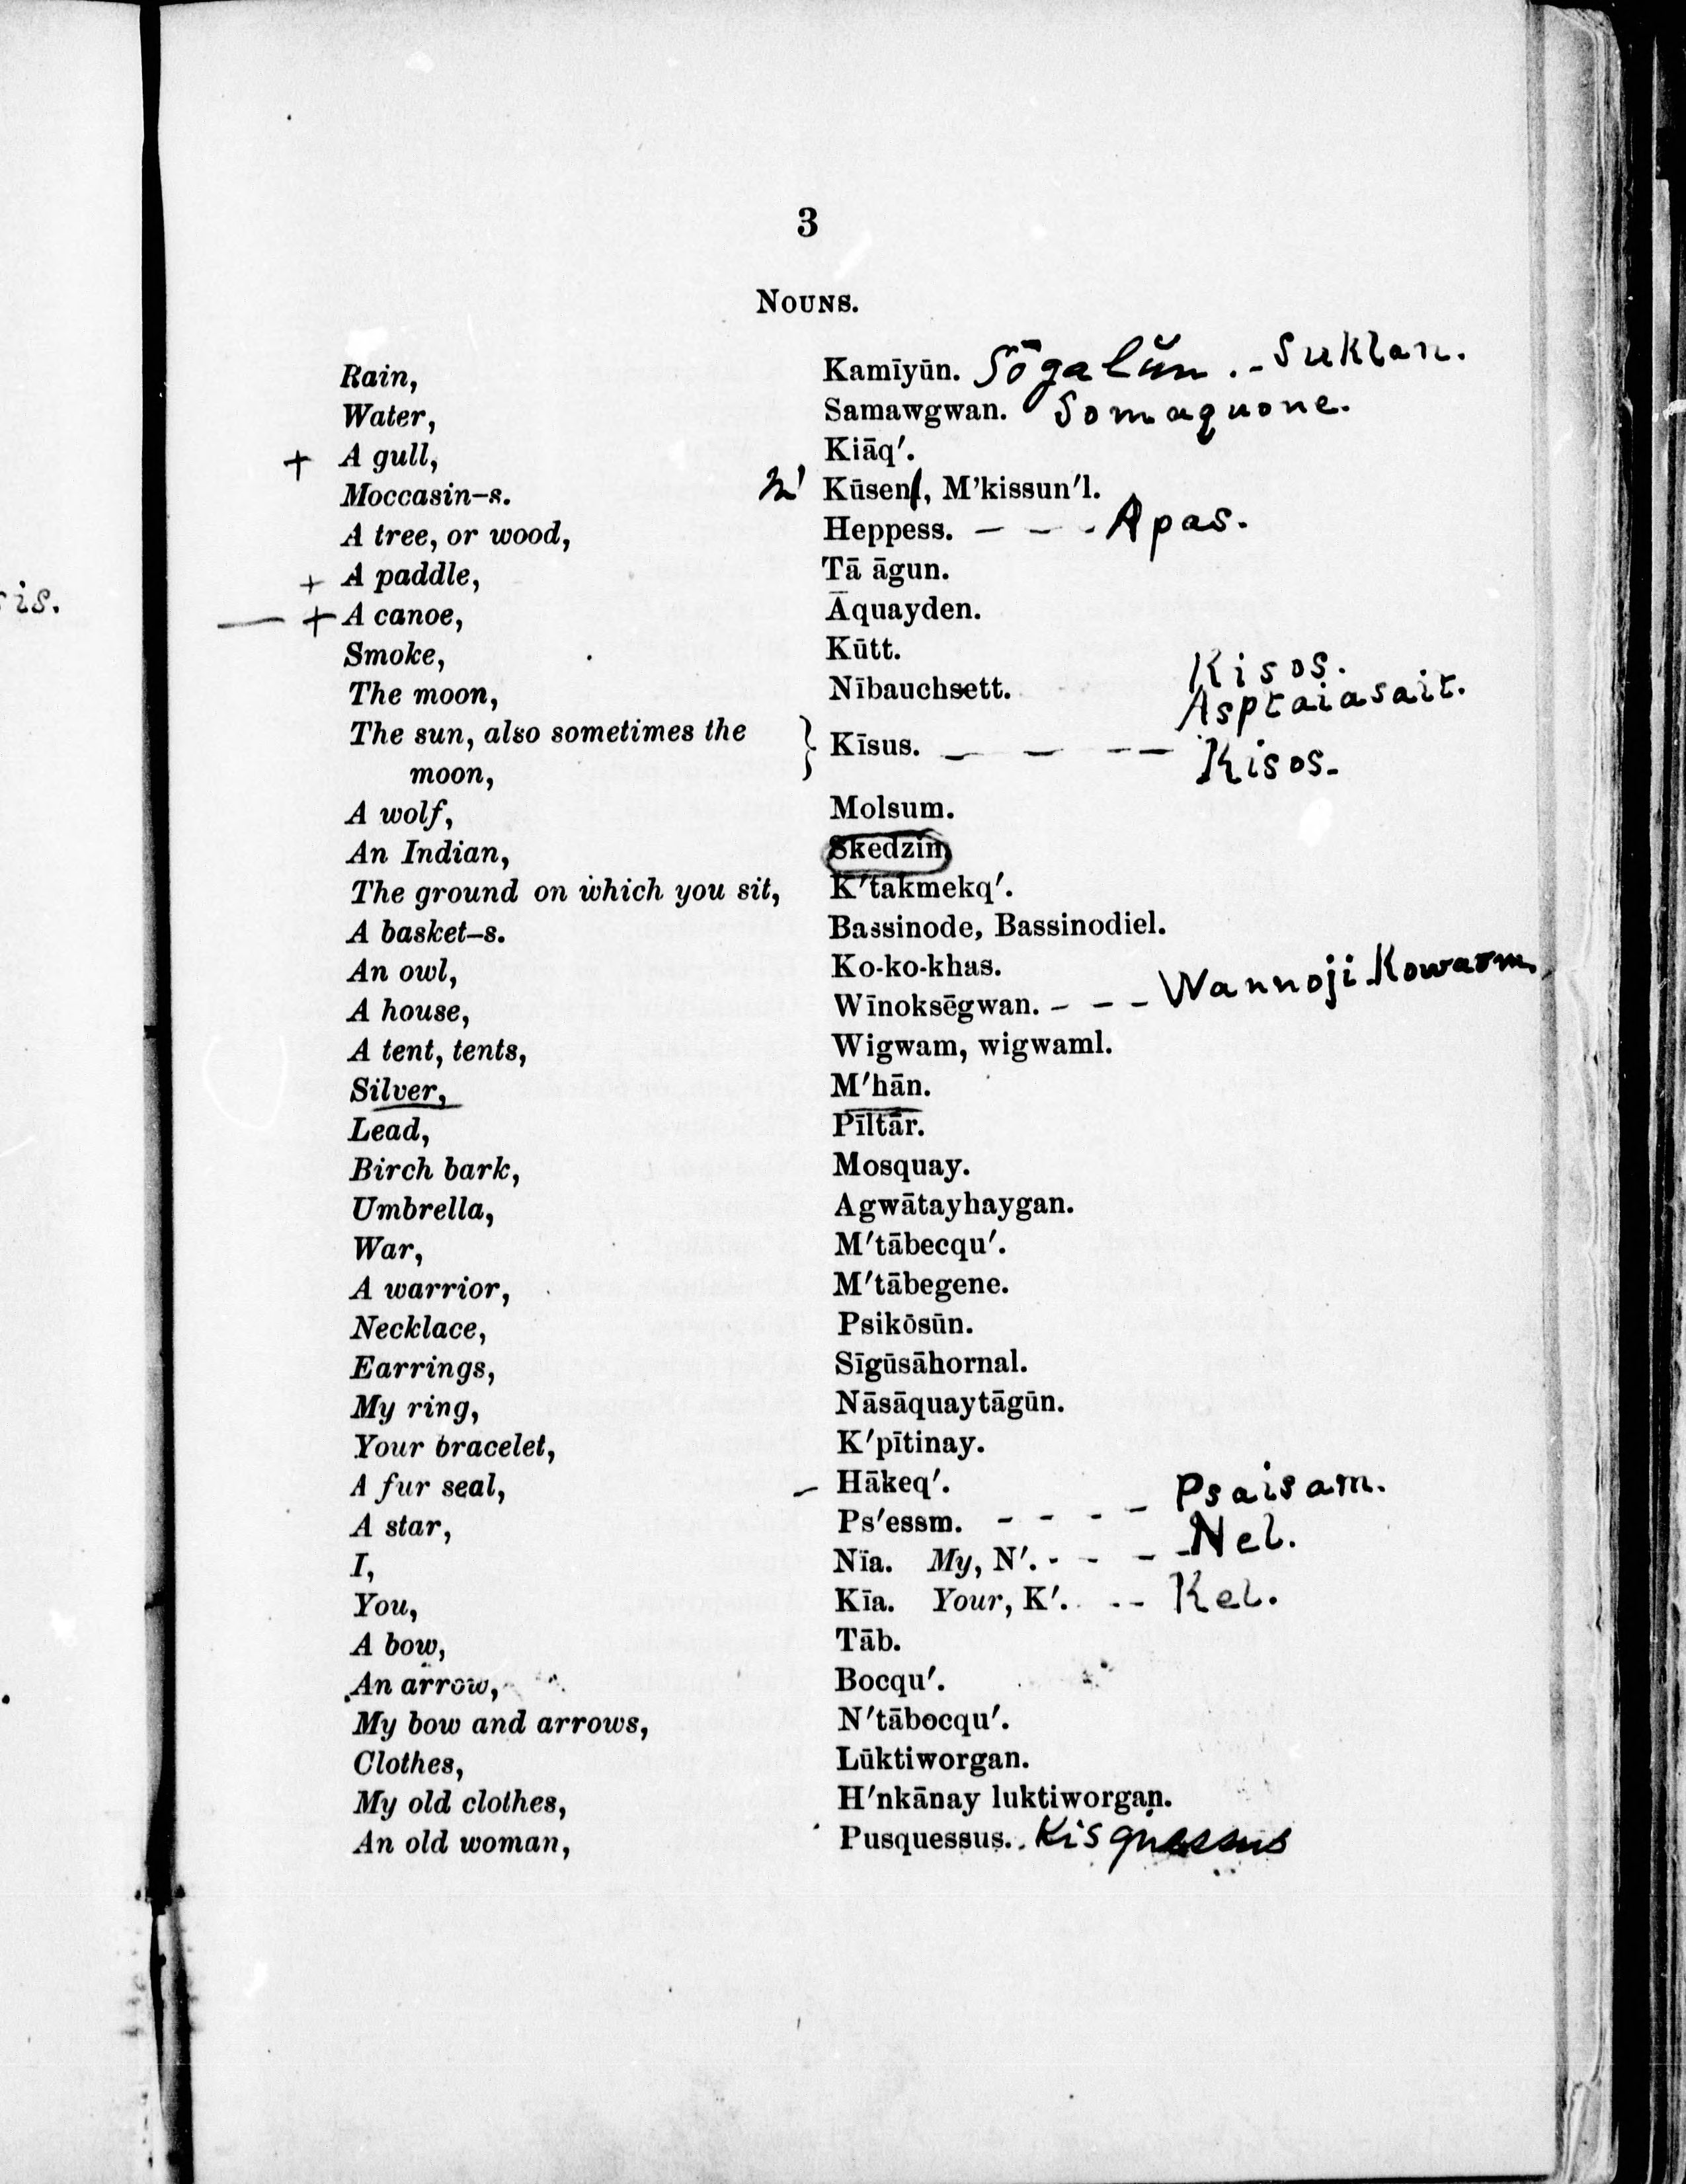 3
NOUNS.
Rain, Kamīyūn. Sōgalŭn .- Suklan.
Water, Samawgwan. Somaquone.
+ A gull, Kiāq'.
Moccasin-s. n' Kūsen/, M'kissun'l.
A tree, or wood, Heppess. - - - Apas.
+ A paddle, Tā āgun.
— + A canoe, Āquayden.
ris.
Smoke, Kūtt.
The moon, Nībauchsett. Kisos.
Asptaiasait.
The sun, also sometimes the
moon, } Kīsus. — — - — Kisos-
A wolf, Molsum.
An Indian, Skedzin
The ground on which you sit, K'takmekq'.
A basket-s. Bassinode, Bassinodiel.
An owl, Ko-ko-khas.
A house, Wīnoksēgwan. - - - Wannoji Kowaom.
A tent, tents, Wigwam, wigwaml.
Silver, M'hān.
Lead, Pīltār.
Birch bark, Mosquay.
Umbrella, Agwātayhaygan.
War, M'tābecqu'.
A warrior, M'tābegene.
Necklace, Psikōsūn.
Earrings, Sīgūsāhornal.
My ring, Nāsāquaytāgūn.
Your bracelet, K'pītinay.
A fur seal, - Hākeq'.
A star, Ps'essm. - - - - Psaisam.
I, Nīa. My, N'. - - - - Nel.
You, Kīa. Your, K'. . - - Kel.
A bow, Tāb.
An arrow, Bocqu'.
My bow and arrows, N'tābocqu'.
Clothes, Lūktiworgan.
My old clothes, H'nkānay luktiworgan.
An old woman, Pusquessus. Kisquessus